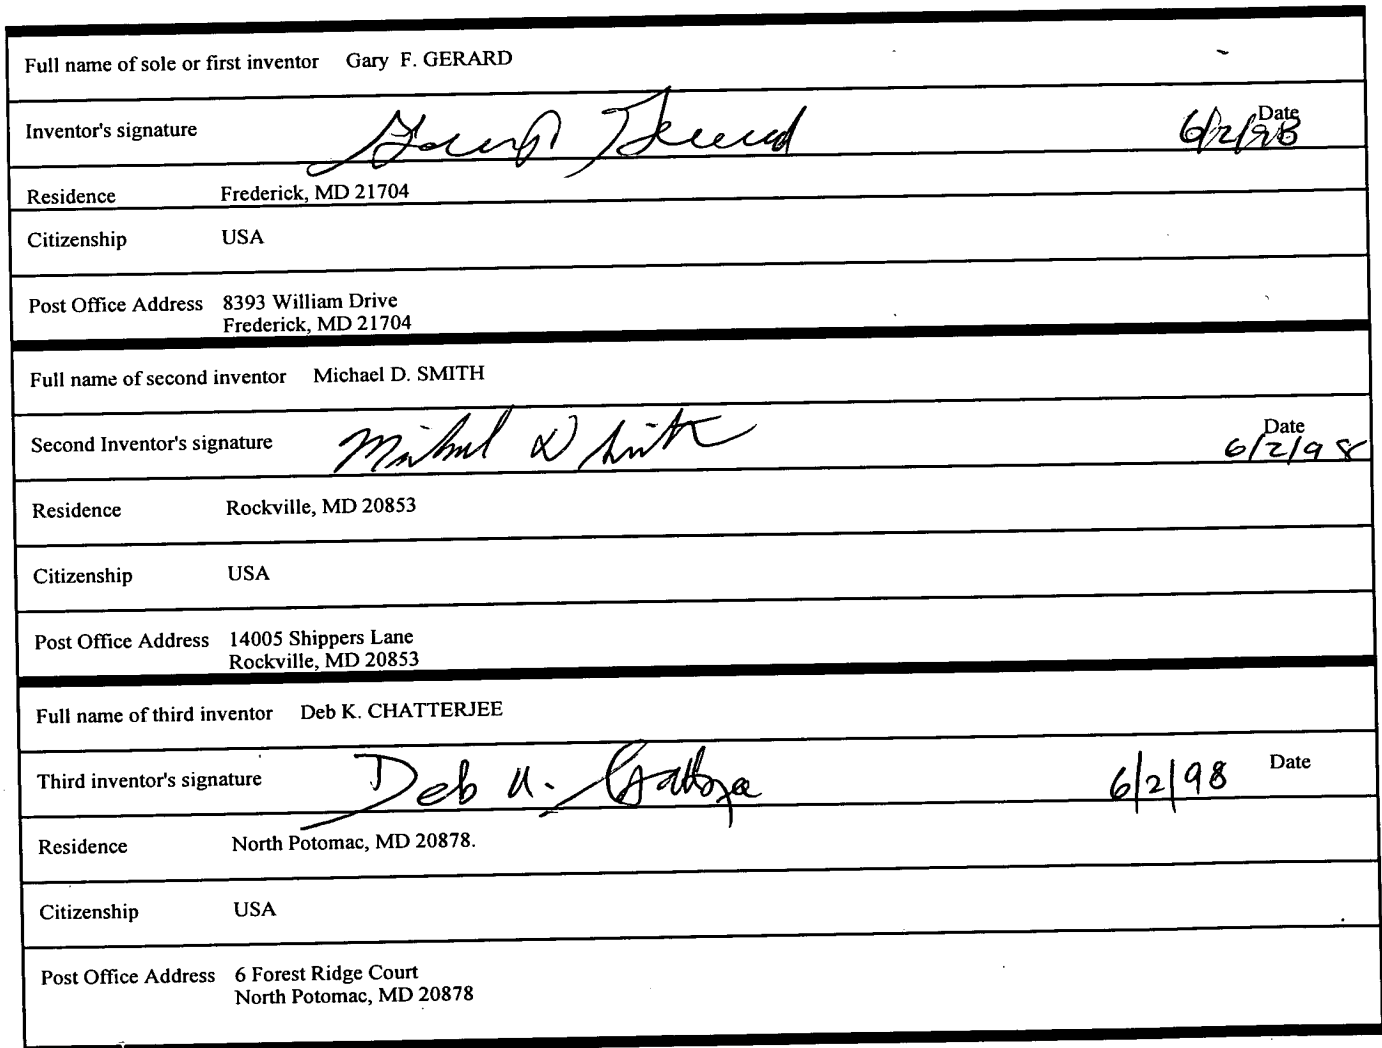 Full name of sole or first inventor Gary F. GERARD
Inventor's signature Gary F Gerard Date 6/2/98
Residence Frederick, MD 21704
Citizenship USA
Post Office Address 8393 William Drive
Frederick, MD 21704
Full name of second inventor Michael D. SMITH
Second Inventor's signature Michael D Smith Date 6/2/98
Residence Rockville, MD 20853
Citizenship USA
Post Office Address 14005 Shippers Lane
Rockville, MD 20853
Full name of third inventor Deb K. CHATTERJEE
Third inventor's signature Deb K. Chatterjee 6/2/98 Date
Residence North Potomac, MD 20878.
Citizenship USA
Post Office Address 6 Forest Ridge Court
North Potomac, MD 20878